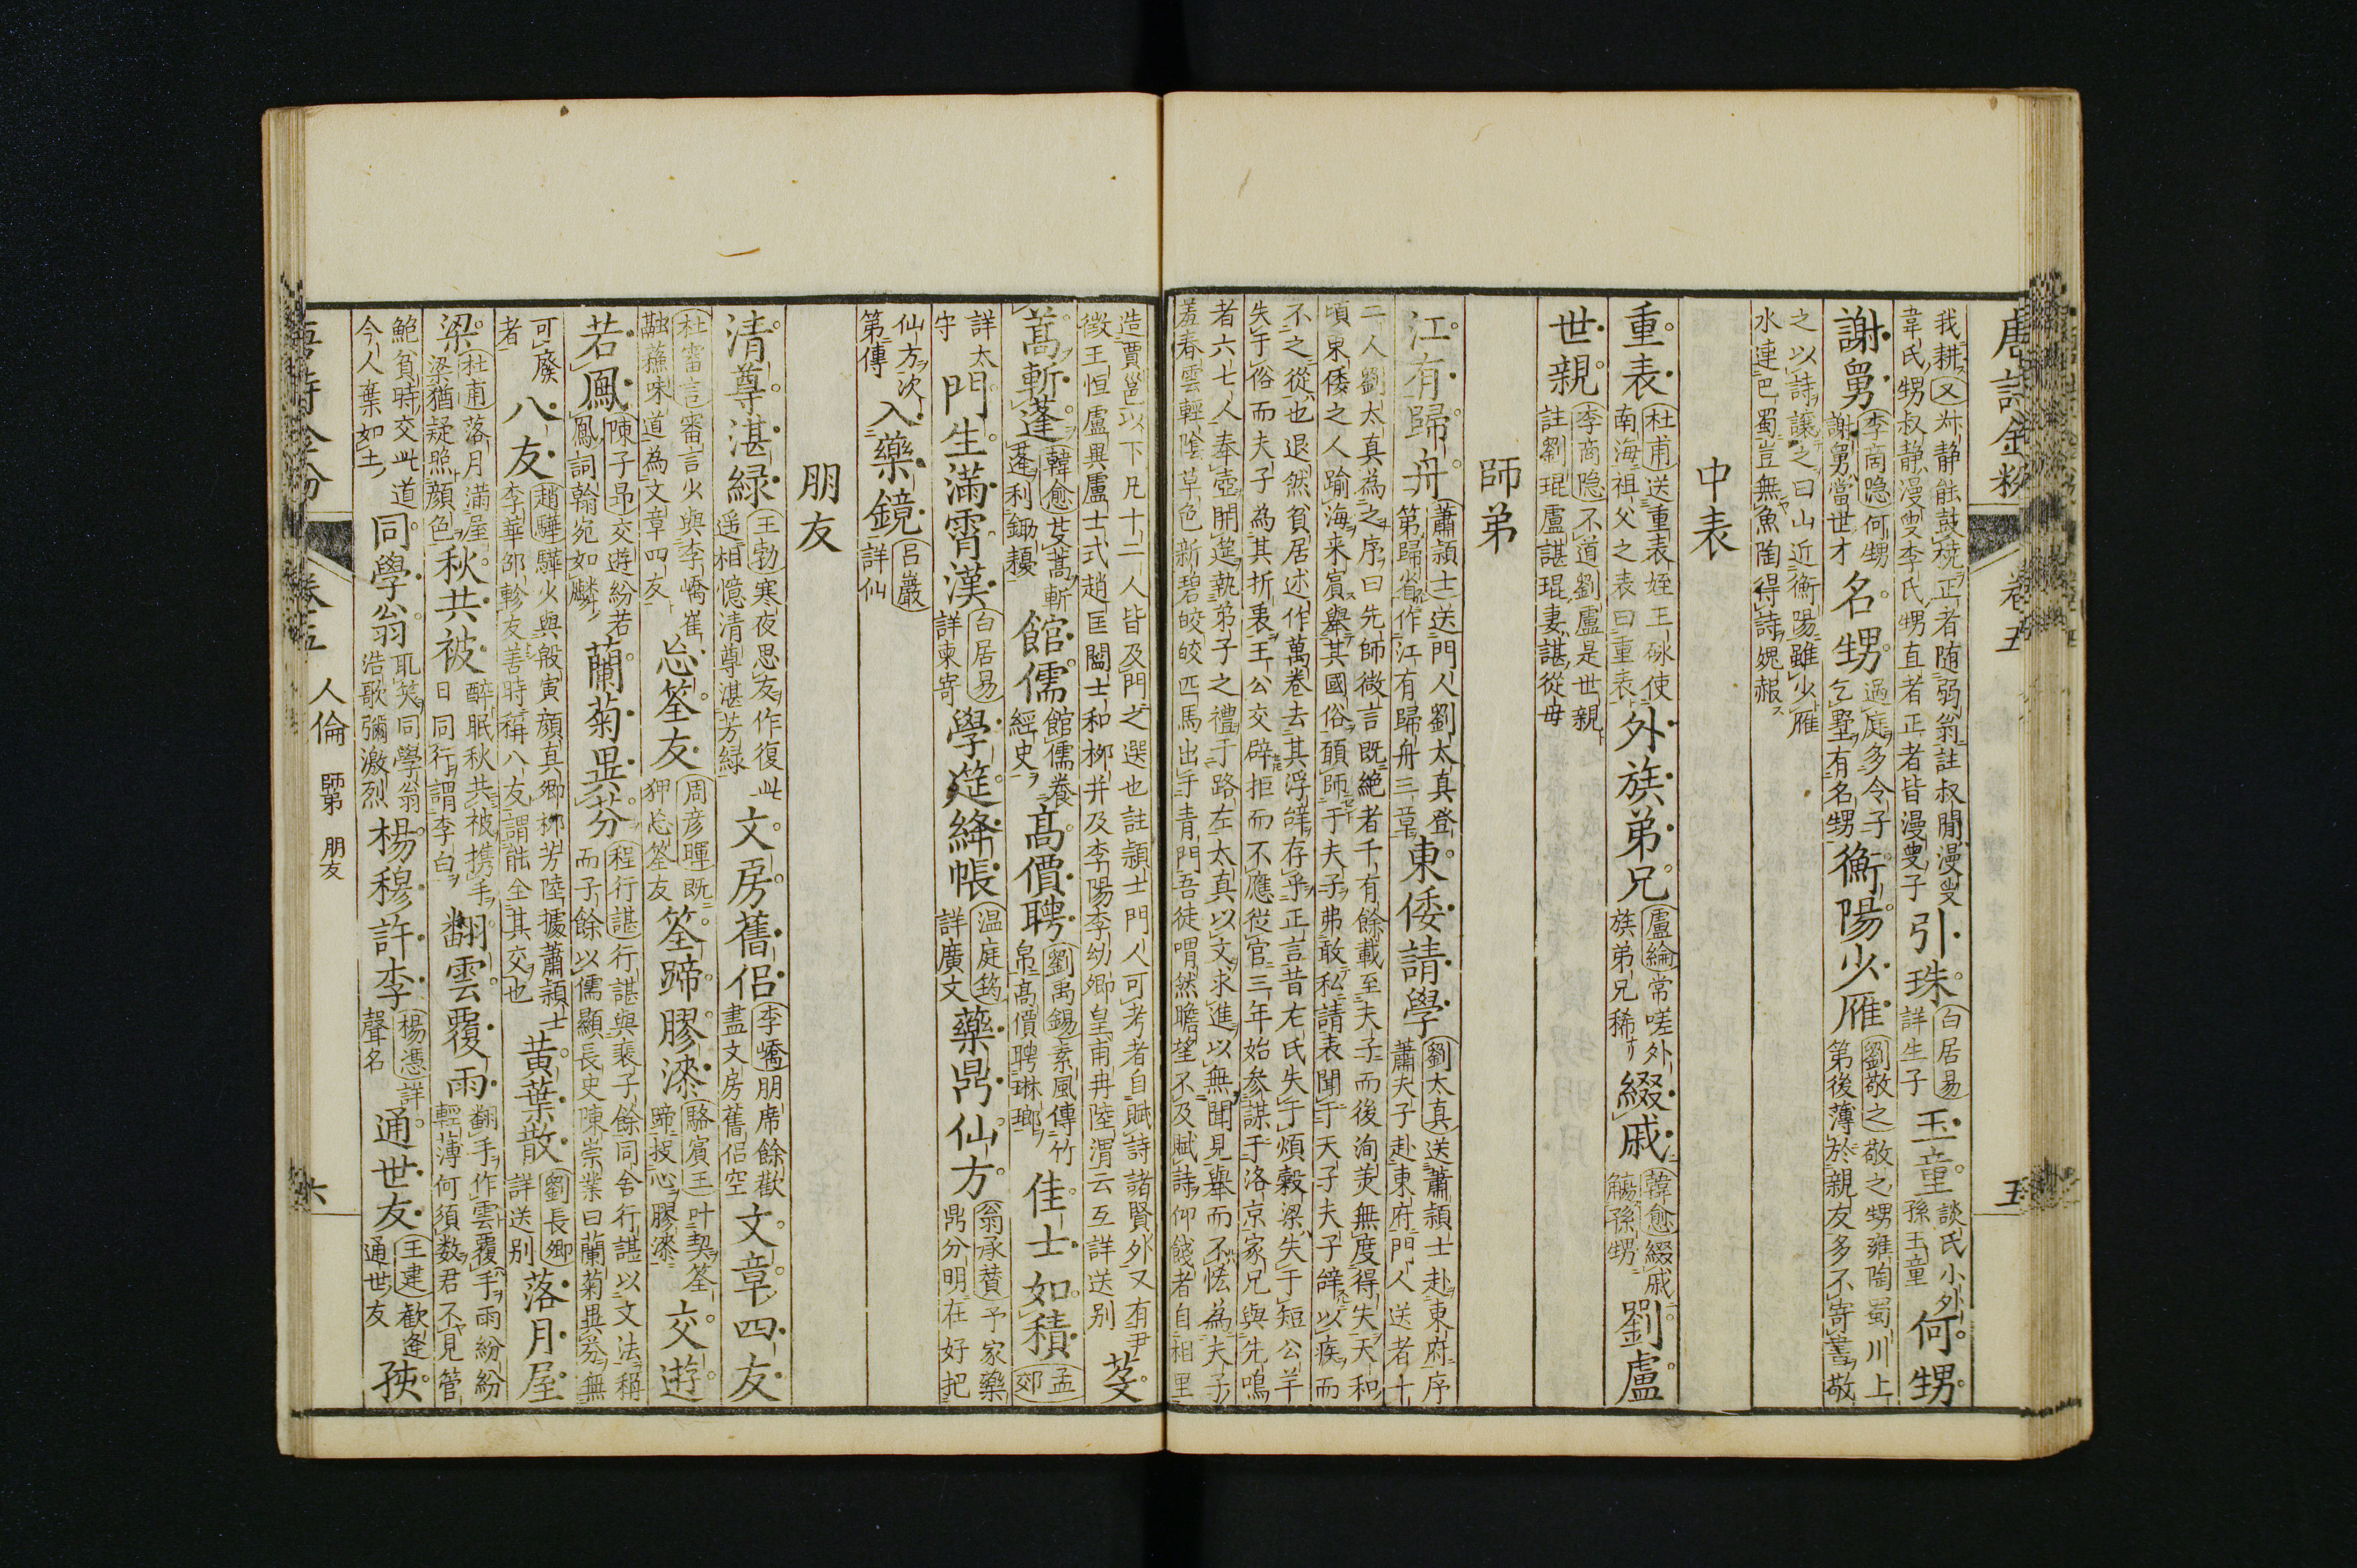 唐詩金粉 卷五 五
我耕又 尓静能鼓橈正者随弱翁註叔閒漫叟
韋氏甥叔静漫叟李氏甥直者正者皆漫叟子
引珠 白居易 詳生子
玉童 談氏小外孫玉童
何甥
謝舅 李商隐 何甥謝舅當世才
名甥 過庭多令子乞墅有名甥
衡陽少雁 劉敬之 敬之甥雍陶蜀川上第後薄於親友多不寄書敬
之以詩讓之曰山近衡陽雖少雁
水連巴蜀豈無魚陶得詩媿赧
中表
重表 杜甫 送重表姪王砅使南海祖父之表曰重表
外族弟兄 盧綸 常嗟外族弟兄稀
綴戚 韓愈 綴戚觴孫甥
劉盧
世親 李商隐 不道劉盧是世親
註劉琨盧諶琨妻諶從母
師弟
江有歸舟 蕭頴士 送門人劉太真登第歸省作江有歸舟三章
東倭請學 劉太真 送蕭頴士赴東府序
蕭夫子赴東府門人送者十
二人劉太真為之序曰先師微言既絶者千有餘載至夫子而後洵美無度得失天和
頃東倭之人踰海来賓舉其國俗願師于夫子弗敢私請表聞于天子夫子辝以疾而
不之從也退然貧居述作萬卷去其浮辝存乎正言昔左氏失于煩穀梁失于短公羊
失于俗而夫子為其折衷王公交辟拒而不應従官三年始参謀于洛京家兄與先鳴
者六七人奉壺開筵執弟子之禮于路左太真以文求進以無聞見舉而不恡為夫子
羞春雲輕陰草色新碧皎皎匹馬出于青門吾徒喟然瞻望不及賦詩仰餞者自相里
造賈邕以下凡十二人皆及門之選也註頴士門人可考者自賦詩諸賢外又有尹
徴王恒盧異盧士式趙匡閻士和柳并及李陽李幼卿皇甫冉陸渭云互詳送别
芟
蒿斬蓬 韓愈 芟蒿斬蓬利鋤耰
館儒 館儒養經史
高價聘 劉禹錫 素風傳竹帛高價聘琳瑯
佳士如積 孟郊
詳太守
門生滿霄漢 白居易 詳柬寄
學筵絳帳 温庭筠 詳廣文
藥鼎仙方 翁承賛 予家藥鼎分明在好把
仙方次第傳
入藥鏡 呂巖 詳仙
朋友
清尊湛緑 王勃 寒夜思友作復此遥相憶清尊湛芳緑
文房舊侶 李嶠 朋席餘歡盡文房舊侶空
文章四友
杜審言 審言少與李嶠崔融蘇味道為文章四友
忘筌友 周彦暉 既狎忘筌友
筌蹄膠漆 駱賓王 叶契筌蹄投心膠漆
交遊
若鳳 陳子昂 交遊紛若鳳詞翰宛如麟
蘭菊異芬 程行諶 行諶與裴子餘同舍行諶以文法稱
而子餘以儒顯長史陳崇業曰蘭菊異芬無
可廢者
八友 趙驊 驊少與殷寅顔真卿柳芳陸據蕭頴士
李華邵軫友善時稱八友謂能全其交也
黄葉散 劉長卿 詳送别
落月屋
梁 杜甫 落月滿屋梁猶疑照顔色
秋共被 醉眠秋共被携手日同行謂李白
翻雲覆雨 翻手作雲覆手雨紛紛輕薄何須数君不見管
鮑貧時交此道今人棄如土
同學翁 取笑同學翁浩歌彌激烈
楊穆許李 楊憑 詳聲名
通世友 王建 歡逢通世友
狹
卷五 人倫 師弟 朋友 六